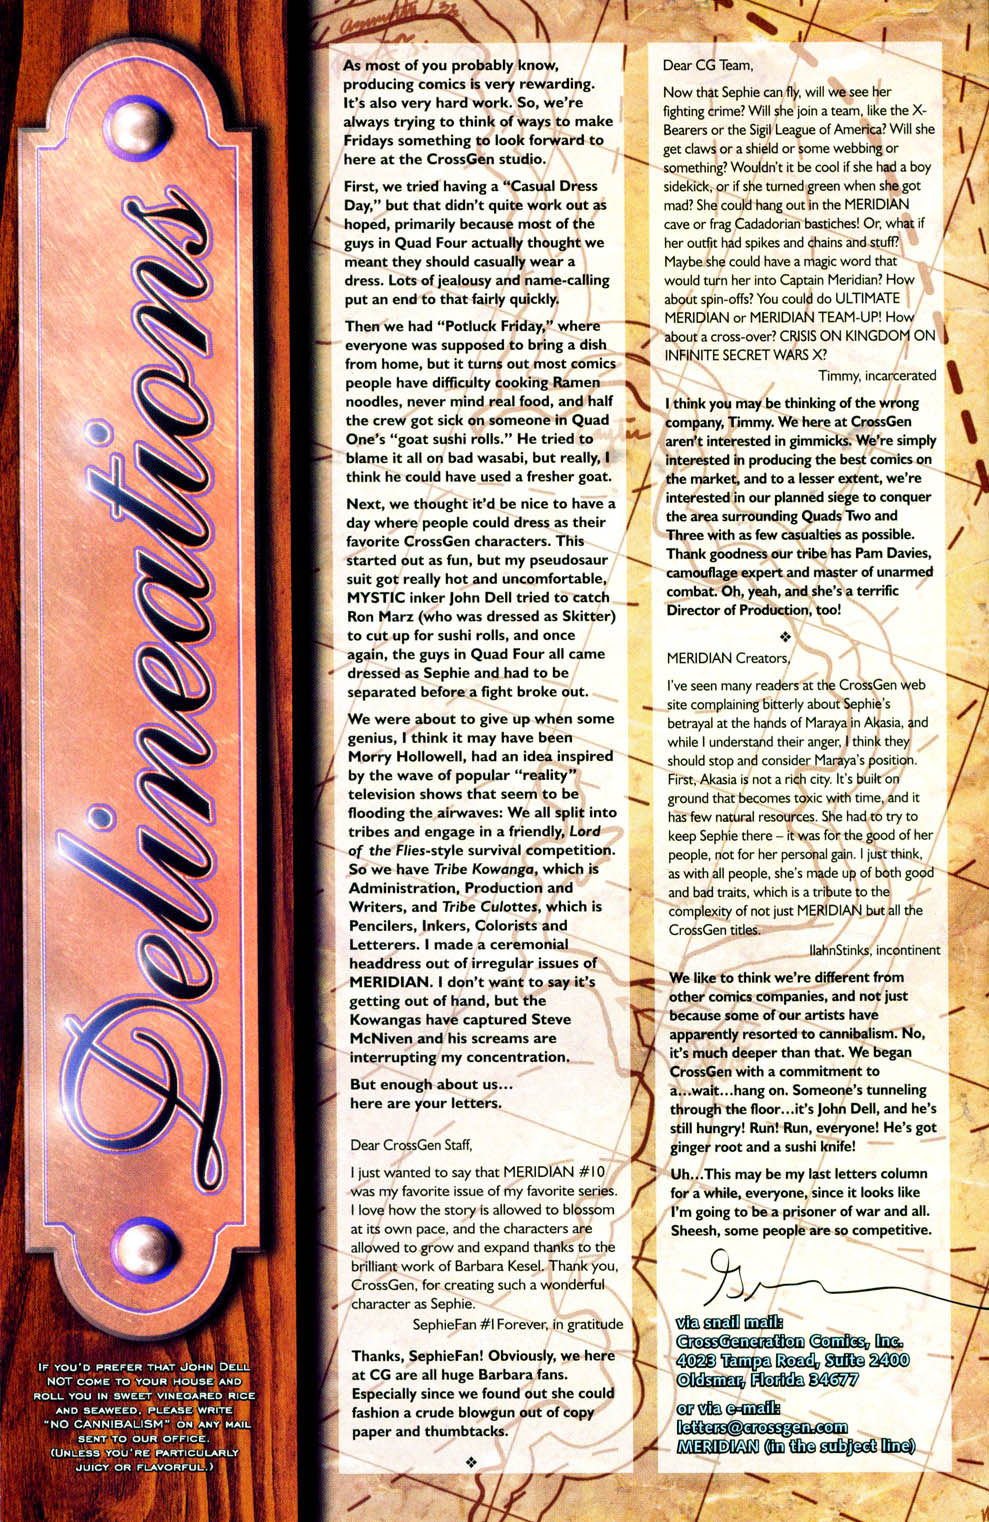 Delineations
IF YOU'D PREFER THAT JOHN DELL
NOT COME TO YOUR HOUSE AND
ROLL YOU IN SWEET VINEGARED RICE
AND SEAWEED, PLEASE WRITE
"NO CANNIBALISM" ON ANY MAIL
SENT TO OUR OFFICE.
(UNLESS YOU'RE PARTICULARLY
JUICY OR FLAVORFUL.)
As most of you probably know,
producing comics is very rewarding.
It's also very hard work. So, we're
always trying to think of ways to make
Fridays something to look forward to
here at the CrossGen studio.
First, we tried having a "Casual Dress
Day," but that didn't quite work out as
hoped, primarily because most of the
guys in Quad Four actually thought we
meant they should casually wear a
dress. Lots of jealousy and name-calling
put an end to that fairly quickly.
Then we had "Potluck Friday," where
everyone was supposed to bring a dish
from home, but it turns out most comics
people have difficulty cooking Ramen
noodles, never mind real food, and half
the crew got sick on someone in Quad
One's "goat sushi rolls." He tried to
blame it all on bad wasabi, but really, I
think he could have used a fresher goat.
Next, we thought it'd be nice to have a
day where people could dress as their
favorite CrossGen characters. This
started out as fun, but my pseudosaur
suit got really hot and uncomfortable,
MYSTIC inker John Dell tried to catch
Ron Marz (who was dressed as Skitter)
to cut up for sushi rolls, and once
again, the guys in Quad Four all came
dressed as Sephie and had to be
separated before a fight broke out.
We were about to give up when some
genius, I think it may have been
Morry Hollowell, had an idea inspired
by the wave of popular "reality"
television shows that seem to be
flooding the airwaves: We all split into
tribes and engage in a friendly, Lord
of the Flies-style survival competition.
So we have Tribe Kowanga, which is
Administration, Production and
Writers, and Tribe Culottes, which is
Pencilers, Inkers, Colorists and
Letterers. I made a ceremonial
headdress out of irregular issues of
MERIDIAN. I don't want to say it's
getting out of hand, but the
Kowangas have captured Steve
McNiven and his screams are
interrupting my concentration.
But enough about us...
here are your letters.
Dear CrossGen Staff,
I just wanted to say that MERIDIAN #10
was my favorite issue of my favorite series.
I love how the story is allowed to blossom
at its own pace, and the characters are
allowed to grow and expand thanks to the
brilliant work of Barbara Kesel. Thank you,
CrossGen, for creating such a wonderful
character as Sephie.
SephieFan #1 Forever, in gratitude
Thanks, SephieFan! Obviously, we here
at CG are all huge Barbara fans.
Especially since we found out she could
fashion a crude blowgun out of copy
paper and thumbtacks.
❖
Dear CG Team,
Now that Sephie can fly, will we see her
fighting crime? Will she join a team, like the X-
Bearers or the Sigil League of America? Will she
get claws or a shield or some webbing or
something? Wouldn't it be cool if she had a boy
sidekick, or if she turned green when she got
mad? She could hang out in the MERIDIAN
cave or frag Cadadorian bastiches! Or, what if
her outfit had spikes and chains and stuff?
Maybe she could have a magic word that
would turn her into Captain Meridian? How
about spin-offs? You could do ULTIMATE
MERIDIAN or MERIDIAN TEAM-UP! How
about a cross-over? CRISIS ON KINGDOM ON
INFINITE SECRET WARS X?
Timmy, incarcerated
I think you may be thinking of the wrong
company, Timmy. We here at CrossGen
aren't interested in gimmicks. We're simply
interested in producing the best comics on
the market, and to a lesser extent, we're
interested in our planned siege to conquer
the area surrounding Quads Two and
Three with as few casualties as possible.
Thank goodness our tribe has Pam Davies,
camouflage expert and master of unarmed
combat. Oh, yeah, and she's a terrific
Director of Production, too!
❖
MERIDIAN Creators,
I've seen many readers at the CrossGen web
site complaining bitterly about Sephie's
betrayal at the hands of Maraya in Akasia, and
while I understand their anger, I think they
should stop and consider Maraya's position.
First, Akasia is not a rich city. It's built on
ground that becomes toxic with time, and it
has few natural resources. She had to try to
keep Sephie there – it was for the good of her
people, not for her personal gain. I just think,
as with all people, she's made up of both good
and bad traits, which is a tribute to the
complexity of not just MERIDIAN but all the
CrossGen titles.
IlahnStinks, incontinent
We like to think we're different from
other comics companies, and not just
because some of our artists have
apparently resorted to cannibalism. No,
it's much deeper than that. We began
CrossGen with a commitment to
a...wait...hang on. Someone's tunneling
through the floor...it's John Dell, and he's
still hungry! Run! Run, everyone! He's got
ginger root and a sushi knife!
Uh...This may be my last letters column
for a while, everyone, since it looks like
I'm going to be a prisoner of war and all.
Sheesh, some people are so competitive.
via snail mail:
CrossGeneration Comics, Inc.
4023 Tampa Road, Suite 2400
Oldsmar, Florida 34677
or via e-mail:
letters@crossgen.com
MERIDIAN (in the subject line)